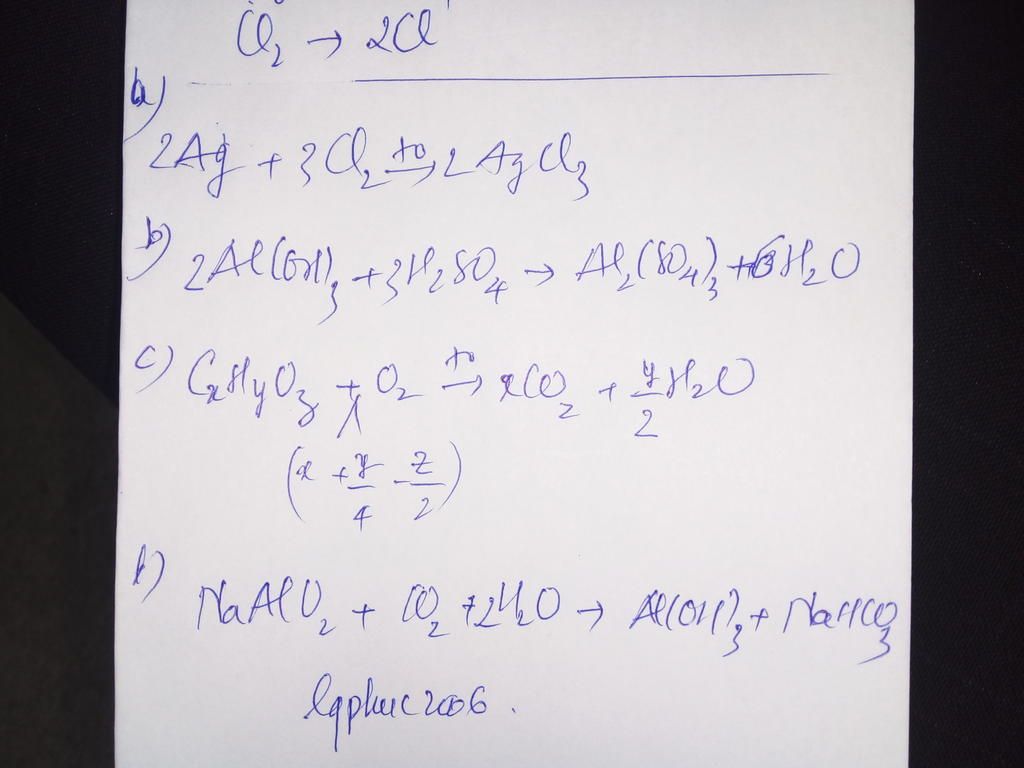 Cl₂ → 2Cl
a)
2Ag + 3Cl₂ →(t⁰) 2AgCl₃
b) 2Al(OH)₃ + 3H₂SO₄ → Al₂(SO₄)₃ + 6H₂O
c) CₓHᵧO_z + O₂ →(t⁰) xCO₂ + y/2 H₂O
(x + y/4 - z/2)
d)
NaAlO₂ + CO₂ + 2H₂O → Al(OH)₃ + NaHCO₃
lqphuc2006.